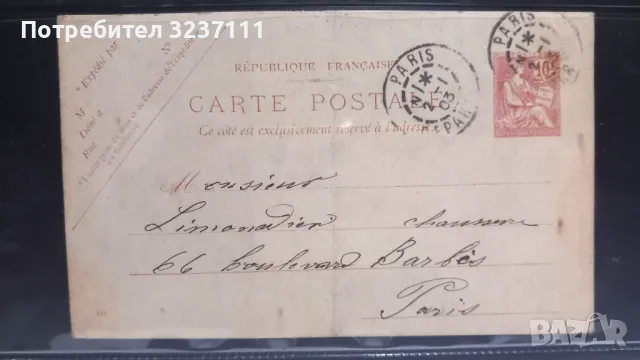 Потребител 3237111
RÉPUBLIQUE FRANÇAISE
CARTE POSTALE
Ce côté est exclusivement réservé à l'adresse.
* Expédié par
N°
M
Rue
PARIS
2 - 1
03
PARIS
10
Monsieur
Limonadier chaussure
66 boulevard Barbès
Paris
bazar